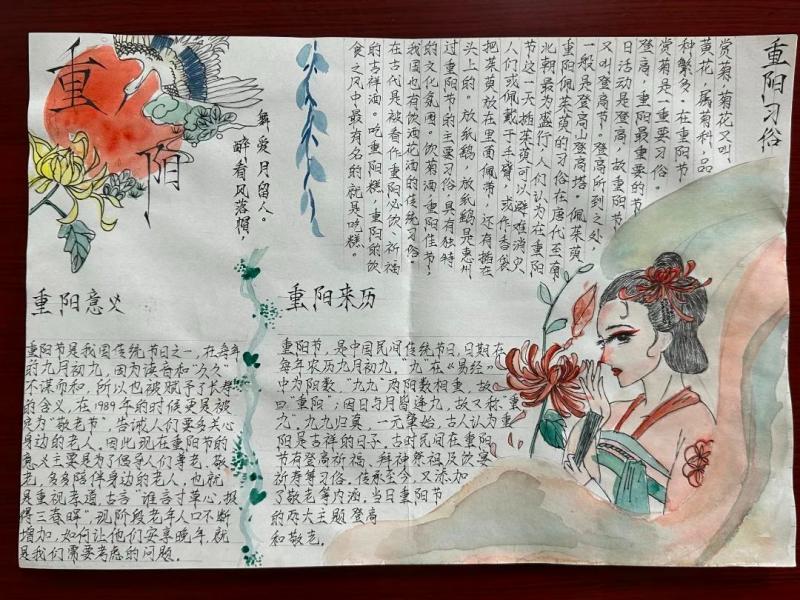 重阳
醉看风落帽，
舞爱月留人。
重阳习俗
赏菊，菊花又叫、
黄花，属菊科，品
种繁多。在重阳节，
赏菊是一重要习俗。
登高，重阳最重要的节
日活动是登高，故重阳节
又叫登高节。登高所到之处
一般是登高山登高塔。佩茱萸，
重阳佩茱萸的习俗在唐代至南
北朝最为盛行，人们认为在重阳
节这一天插茱萸可以避难消灾
人们或佩戴于手臂，或作香袋
把茱萸放在里面佩带，还有插在
头上的。放纸鹞，放纸鹞是惠州
过重阳节的主要习俗，具有独特
的文化氛围。饮菊酒，重阳佳节，
我国也有饮酒花酒的传统习俗。
在古代是被看作重阳必饮、祈福
的吉祥酒。吃重阳糕，重阳的饮
食之风中最有名的就是吃糕。
重阳意义
重阳节是我国传统节日之一，在每年
的九月初九，因为读音和“久久”
不谋而和，所以也被赋予了长寿
的含义，在1989年的时候更是被
定为“敬老节”，告诫人们要多关心
身边的老人。因此，现在重阳节的
意义主要是为了倡导人们尊老、敬
老，多多陪伴身边的老人，也就
是重视孝道，古言“谁言寸草心，报
得三春晖”，现阶段老年人口不断
增加，如何让他们安享晚年，就
是我们需要考虑的问题。
重阳来历
重阳节，是中国民间传统节日，日期在
每年农历九月初九，“九”在《易经》
中为阳数，“九九”两阳数相重，故
曰“重阳”；因日与月皆逢九，故又称“重
九”。九九归真，一元肇始，古人认为重
阳是吉祥的日子。古时民间在重阳
节有登高祈福、拜神祭祖及饮宴
祈寿等习俗。传承至今，又添加
了敬老等内涵，当日重阳节
的两大主题登高
和敬老。